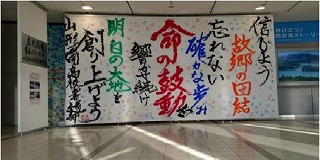 信じよう
故郷の団結
忘れない
確かな歩み
命の鼓動
響き続け
明日の大地を
創り上げよう
山形南高校書道部